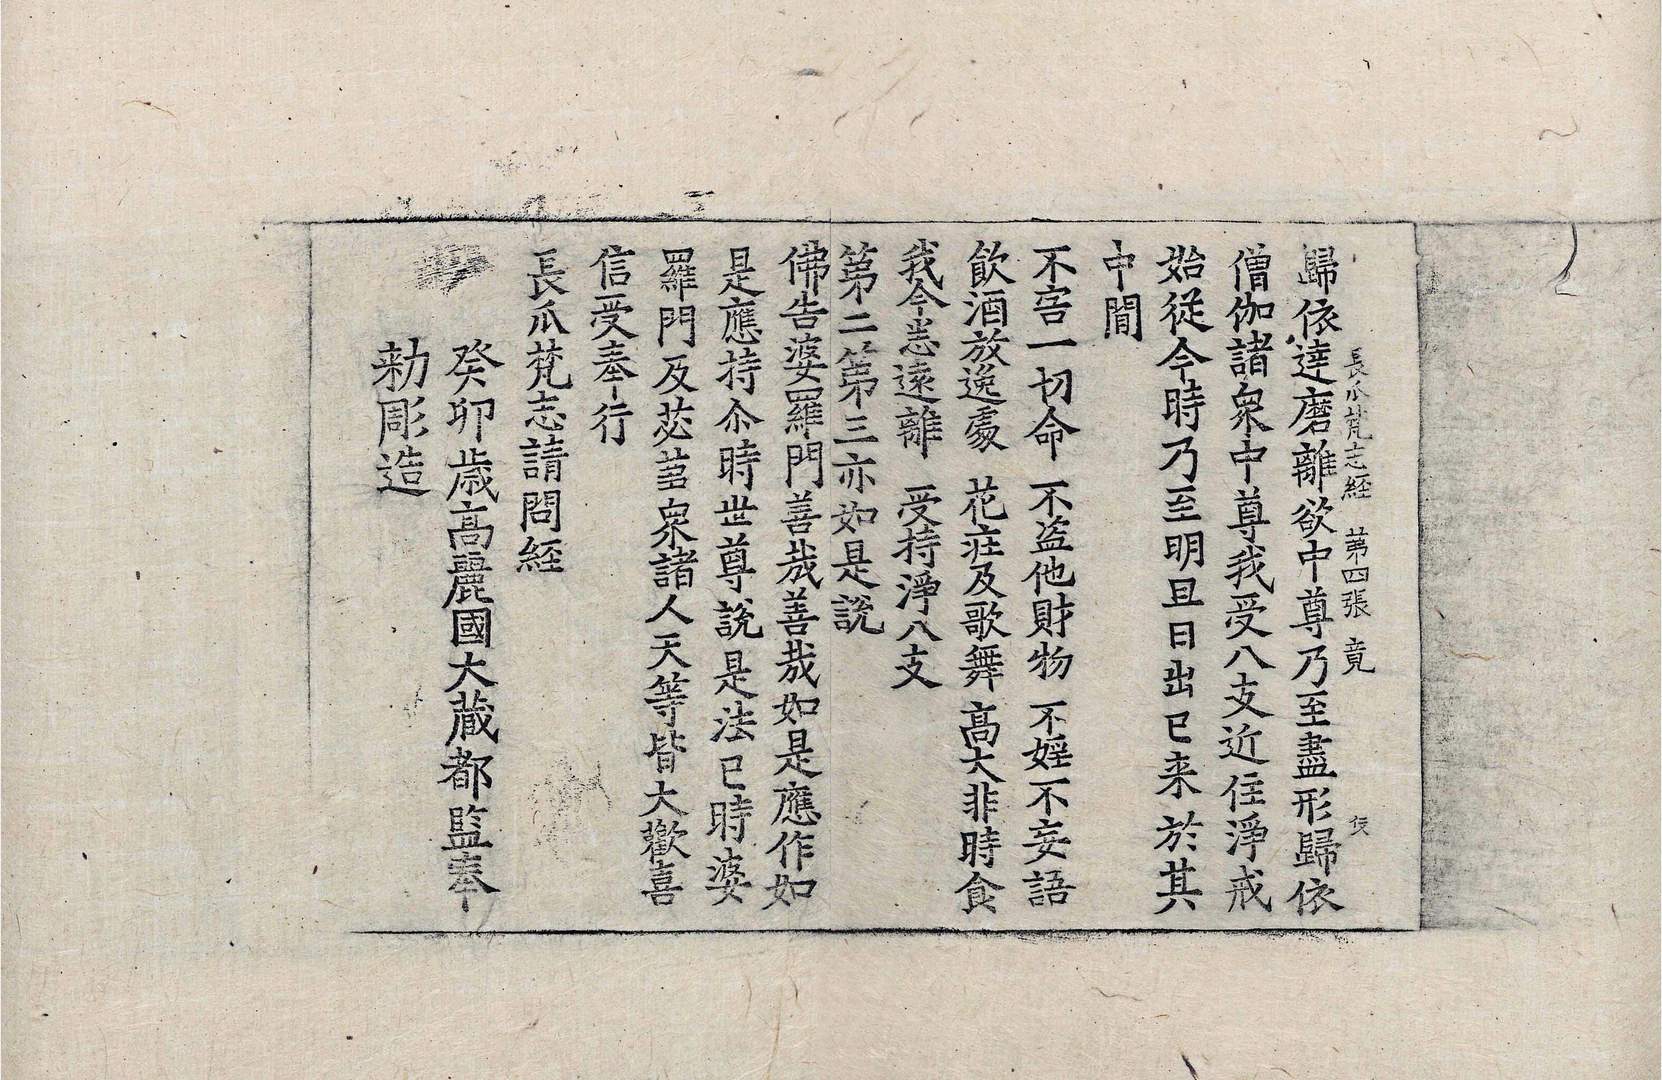 長爪梵志経 第四張 竟
歸依達磨離欲中尊乃至盡形歸依
僧伽諸衆中尊我受八支近住淨戒
始從今時乃至明旦日出已来於其
中間
不害一切命 不盗他財物 不婬不妄語
飲酒放逸處 花莊及歌舞 高大非時食
我今悉遠離 受持淨八支
第二第三亦如是說
佛告婆羅門善哉善哉如是應作如
是應持尒時世尊說是法已時婆
羅門及苾芻衆諸人天等皆大歡喜
信受奉行
長爪梵志請問経
癸卯歳高麗國大藏都監奉
勅彫造